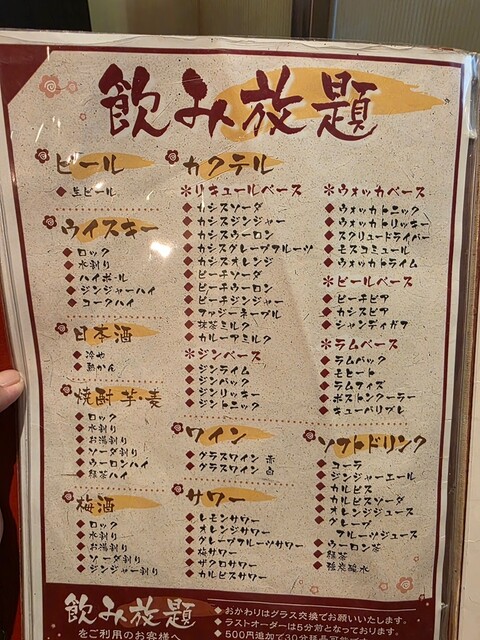 飲み放題
ビール
生ビール
ウイスキー
ロック
水割り
ハイボール
ジンジャーハイ
コークハイ
日本酒
冷や
熱かん
焼酎 芋・麦
ロック
水割り
お湯割り
ソーダ割り
ウーロンハイ
緑茶ハイ
梅酒
ロック
水割り
お湯割り
ソーダ割り
ジンジャー割り
カクテル
*リキュールベース
カシスソーダ
カシスジンジャー
カシスウーロン
カシスグレープフルーツ
カシスオレンジ
ピーチソーダ
ピーチウーロン
ピーチジンジャー
ファジーネーブル
抹茶ミルク
カルーアミルク
*ジンベース
ジンライム
ジンバック
ジンリッキー
ジントニック
ワイン
グラスワイン 赤
グラスワイン 白
サワー
レモンサワー
オレンジサワー
グレープフルーツサワー
梅サワー
ザクロサワー
カルピスサワー
*ウォッカベース
ウォッカトニック
ウォッカリッキー
スクリュードライバー
モスコミュール
ウォッカライム
*ビールベース
ピーチビア
カシスビア
シャンディガフ
*ラムベース
ラムバック
モヒート
ラムフィズ
ボストンクーラー
キューバリブレ
ソフトドリンク
コーラ
ジンジャーエール
カルピス
カルピスソーダ
オレンジジュース
グレープ
フルーツジュース
ウーロン茶
緑茶
強炭酸水
飲み放題
をご利用のお客様へ
おかわりはグラス交換でお願いいたします。
ラストオーダーは5分前となっております。
500円追加で30分延長可能です